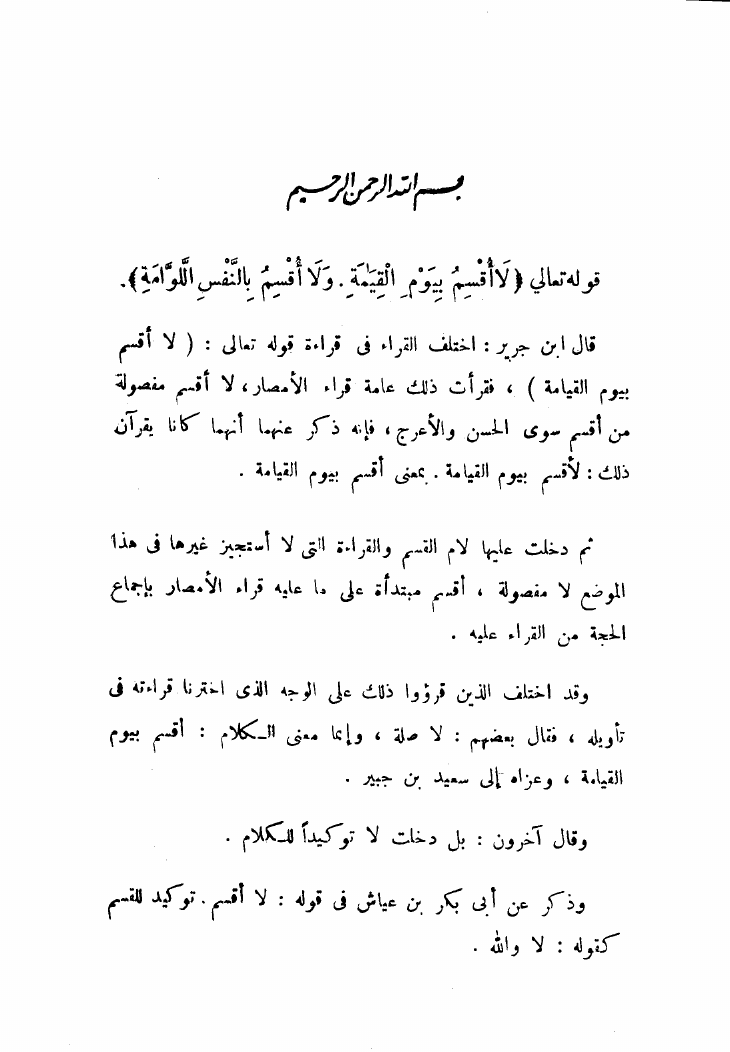 بسم الله الرحمن الرحيم
قوله تعالي ﴿لَا أُقْسِمُ بِيَوْمِ الْقِيَٰمَةِ . وَلَا أُقْسِمُ بِالنَّفْسِ اللَّوَّامَةِ﴾.
قال ابن جرير : اختلف القراء فى قراءة قوله تعالى : ( لا أقسم
بيوم القيامة ) ، فقرأت ذلك عامة قراء الأمصار ، لا أقسم مفصولة
من أقسم سوى الحسن والأعرج ، فإنه ذكر عنهما أنهما كانا يقرآن
ذلك : لأقسم بيوم القيامة . بمعنى أقسم بيوم القيامة .
ثم دخلت عليها لام القسم والقراءة التى لا أستجيز غيرها فى هذا
الموضع لا مفصولة ، أقسم مبتدأة على ما عليه قراء الأمصار بإجماع
الحجة من القراء عليه .
وقد اختلف الذين قرؤوا ذلك على الوجه الذى اخترنا قراءته فى
تأويله ، فقال بعضهم : لا صلة ، وإنما معنى الكلام : أقسم بيوم
القيامة ، وعزاه إلى سعيد بن جبير .
وقال آخرون : بل دخلت لا توكيداً للكلام .
وذكر عن أبى بكر بن عياش فى قوله : لا أقسم . توكيد للقسم
كقوله : لا والله .